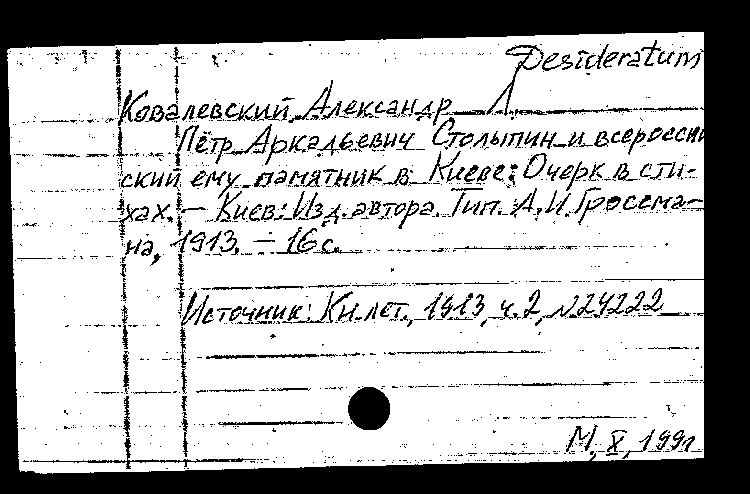 Desideratum
Ковалевский, Александр Л.
Пётр Аркадьевич Столыпин и всеросси
ский ему памятник в Киеве: Очерк в сти-
хах. – Киев: Изд. автора. Тип. А.И. Гроссма-
на, 1913. – 16 с.
Источник: Кн. лет., 1913, ч. 2, №24222
М, X, 1991